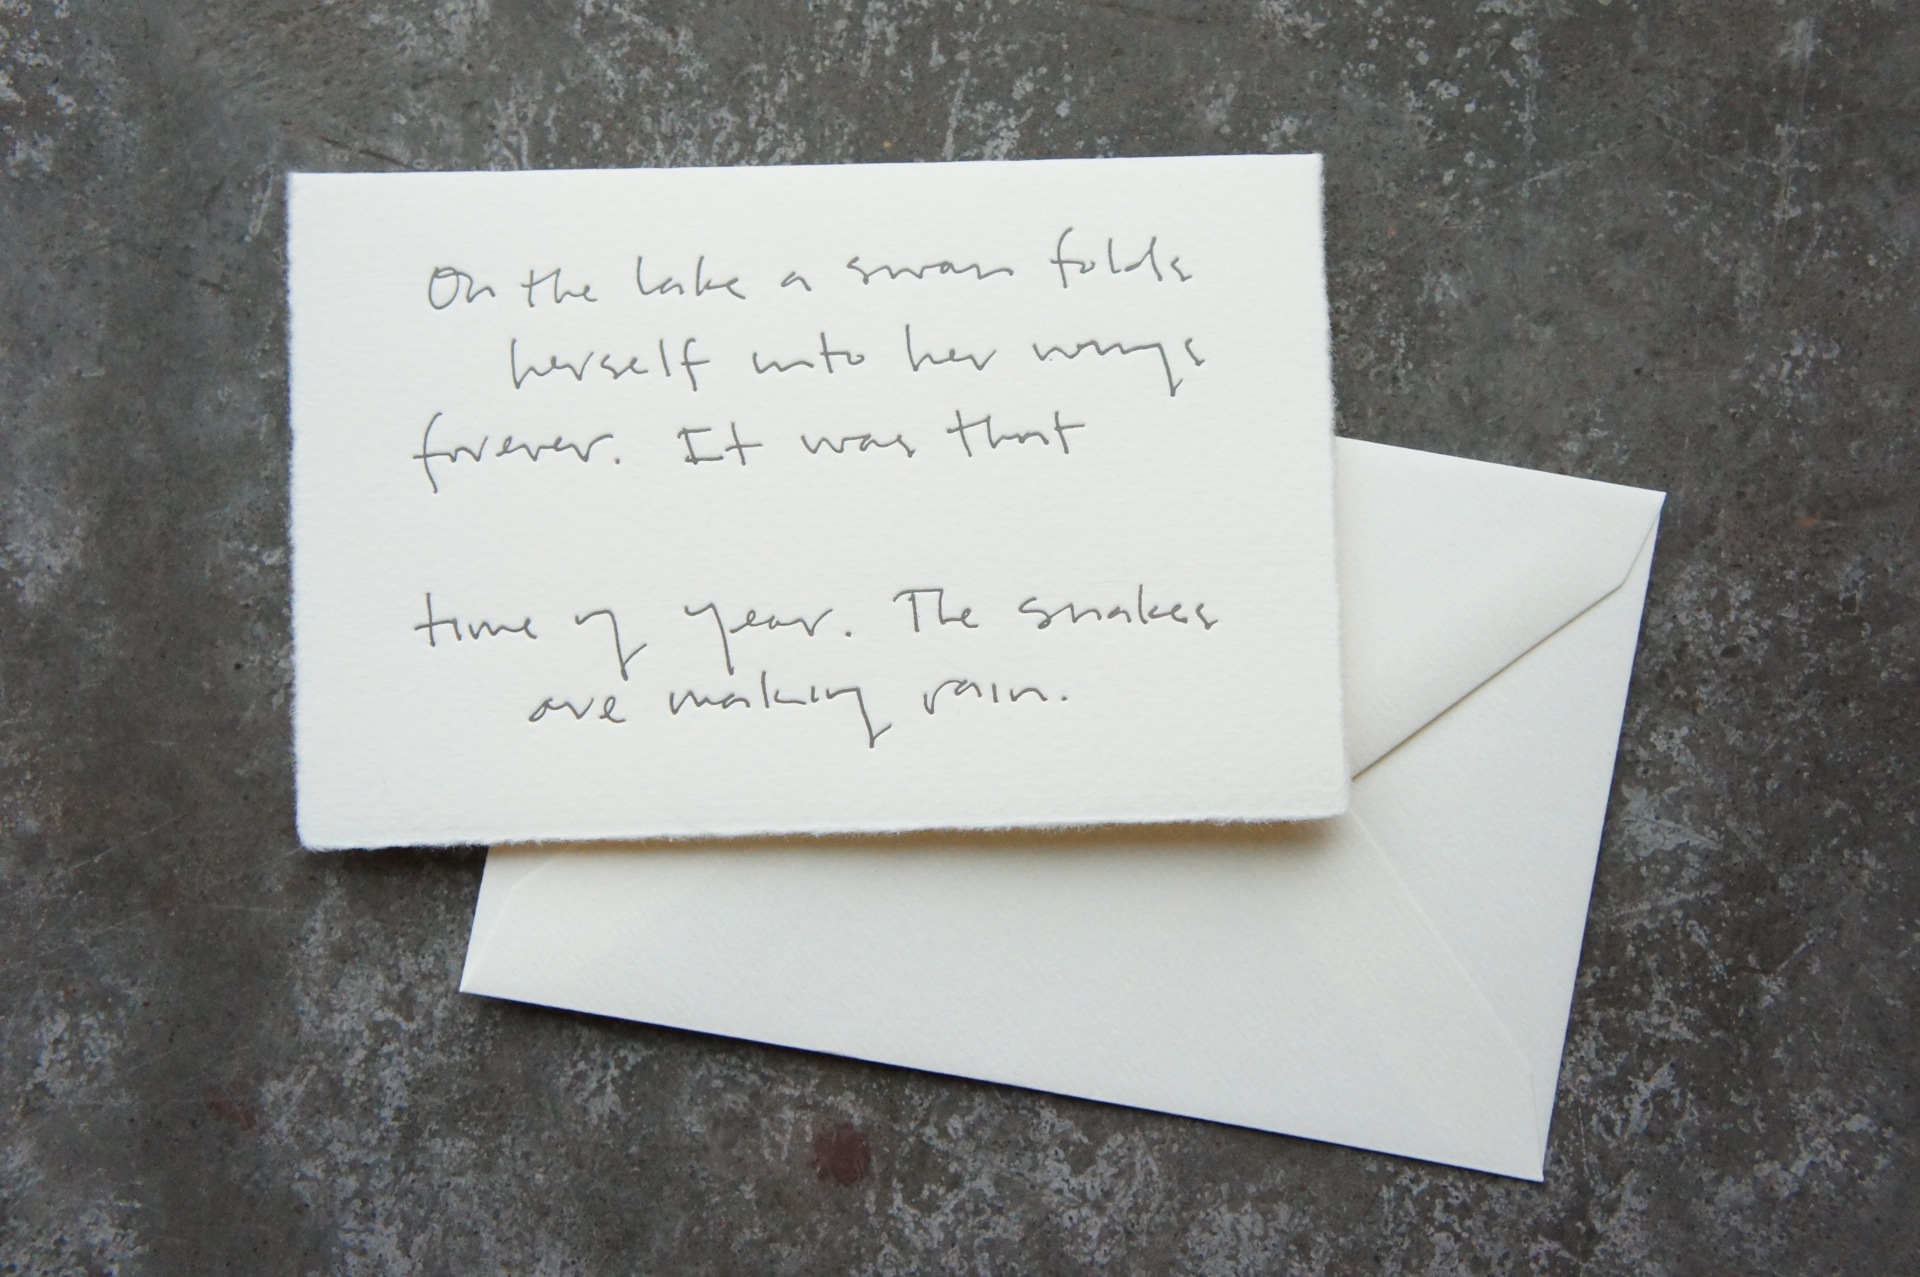 On the lake a swan folds
herself into her wings
forever. It was that
time of year. The snakes
are making rain.